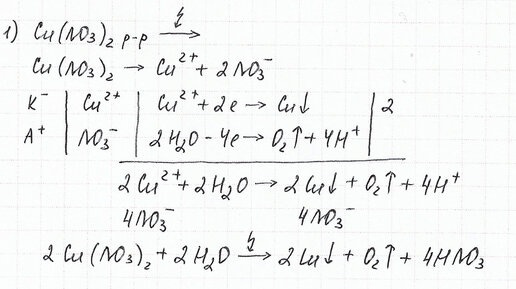 1) Cu(NO3)2 р-р ⟶
Cu(NO3)2 → Cu²⁺ + 2NO3⁻
K⁻ | Cu²⁺ | Cu²⁺ + 2e → Cu↓ | 2
A⁺ | NO3⁻ | 2H2O - 4e → O2↑ + 4H⁺ |
2Cu²⁺ + 2H2O → 2Cu↓ + O2↑ + 4H⁺
4NO3⁻ 4NO3⁻
2Cu(NO3)2 + 2H2O ⟶ 2Cu↓ + O2↑ + 4HNO3